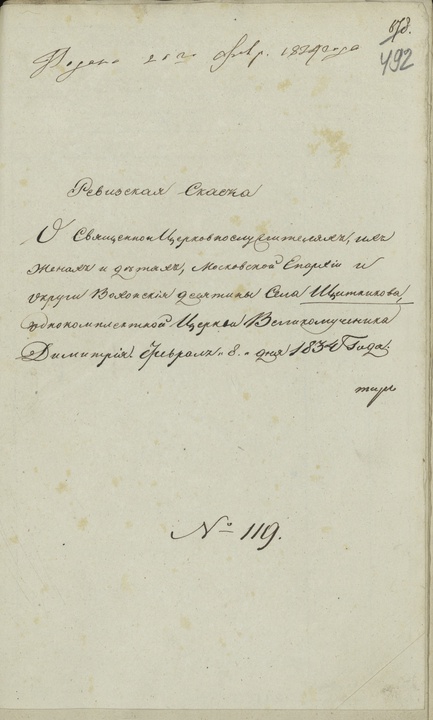 678.
492
Подано 21го Февр. 1834 года
Ревизская Сказка
О Священноицерковнослужителяхъ, ихъ
женахъ и дѣтяхъ, Московской Епархіи и
округи Вохонскія десятины Села Щитникова,
однокомплектной Церкви Великомученика
Димитрія. Февраля „8.„ дня 1834 Года.
№ 119.